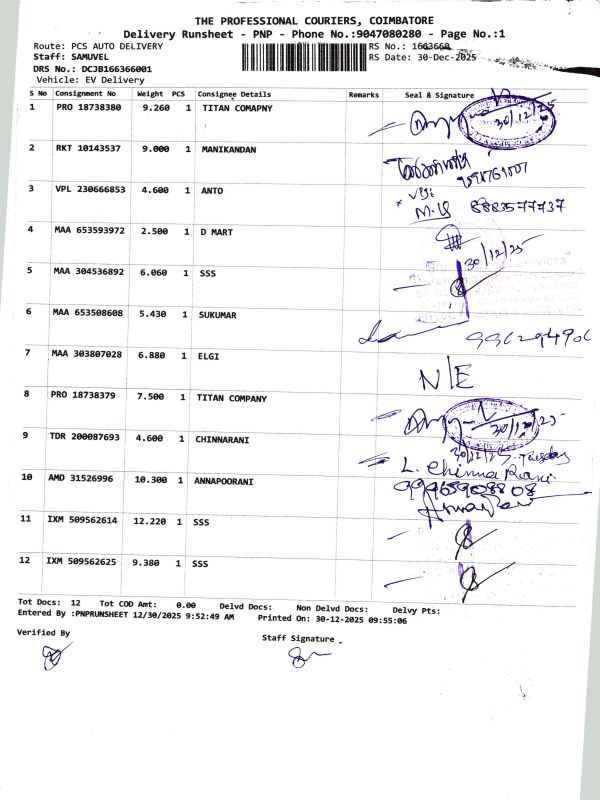 THE PROFESSIONAL COURIERS, COIMBATORE
Delivery Runsheet - PNP - Phone No.:9047080280 - Page No.:1
Route: PCS AUTO DELIVERY RS No.: 1663660
Staff: SAMUVEL RS Date: 30-Dec-2025
DRS No.: DCJB166366001
Vehicle: EV Delivery
S No Consignment No Weight PCS Consignee Details Remarks Seal & Signature
1 PRO 18738380 9.260 1 TITAN COMAPNY 30/12/25
2 RKT 10143537 9.000 1 MANIKANDAN
3 VPL 230666853 4.600 1 ANTO 8883577737
4 MAA 653593972 2.500 1 D MART 30/12/25
5 MAA 304536892 6.060 1 SSS
6 MAA 653508608 5.430 1 SUKUMAR
7 MAA 303807028 6.880 1 ELGI N/E
8 PRO 18738379 7.500 1 TITAN COMPANY 30/12/25
9 TDR 200087693 4.600 1 CHINNARANI 30/12/25. Tuesday
L. Chinna Rani.
10 AMD 31526996 10.300 1 ANNAPOORANI
11 IXM 509562614 12.220 1 SSS
12 IXM 509562625 9.380 1 SSS
Tot Docs: 12 Tot COD Amt: 0.00 Delvd Docs: Non Delvd Docs: Delvy Pts:
Entered By :PNPRUNSHEET 12/30/2025 9:52:49 AM Printed On: 30-12-2025 09:55:06
Verified By Staff Signature